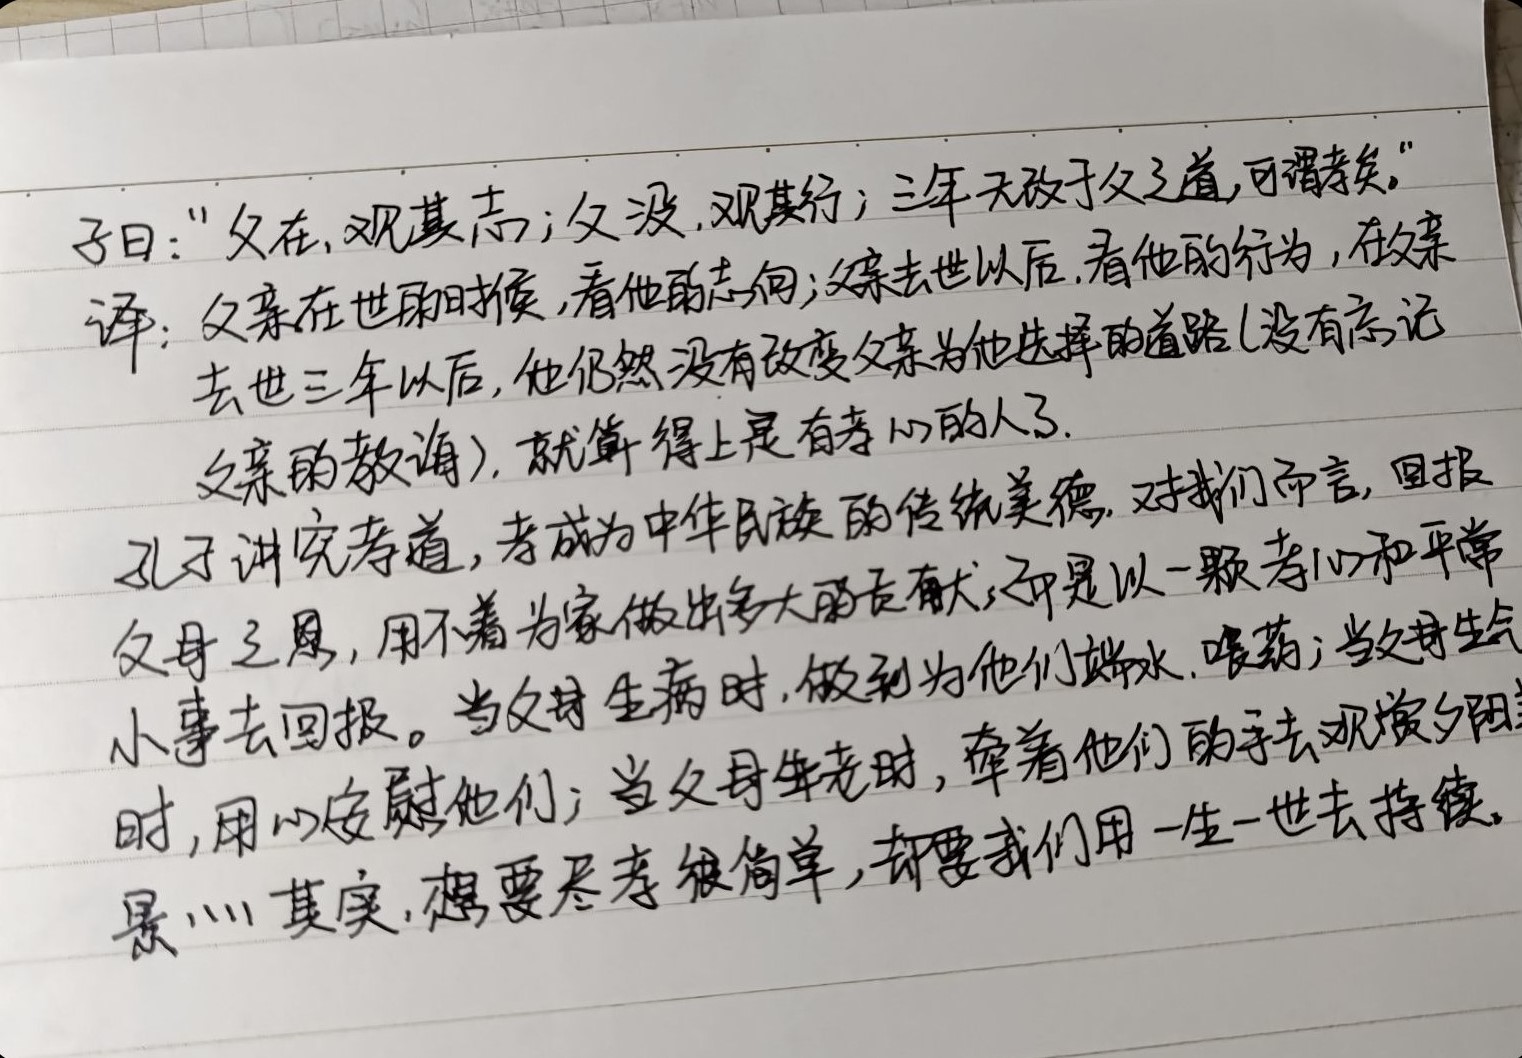 子曰："父在，观其志；父没，观其行；三年无改于父之道，可谓孝矣。"
译：父亲在世的时候，看他的志向；父亲去世以后，看他的行为，在父亲
去世三年以后，他仍然没有改变父亲为他选择的道路（没有忘记
父亲的教诲），就算得上是有孝心的人了.
孔子讲究孝道，孝成为中华民族的传统美德，对我们而言，回报
父母之恩，用不着为家做出多大的贡献，而是以一颗孝心和平常
小事去回报。当父母生病时，做到为他们端水、喂药；当父母生气
时，用心安慰他们；当父母年老时，牵着他们的手去观赏夕阳美
景…… 其实，想要尽孝很简单，却要我们用一生一世去持续。